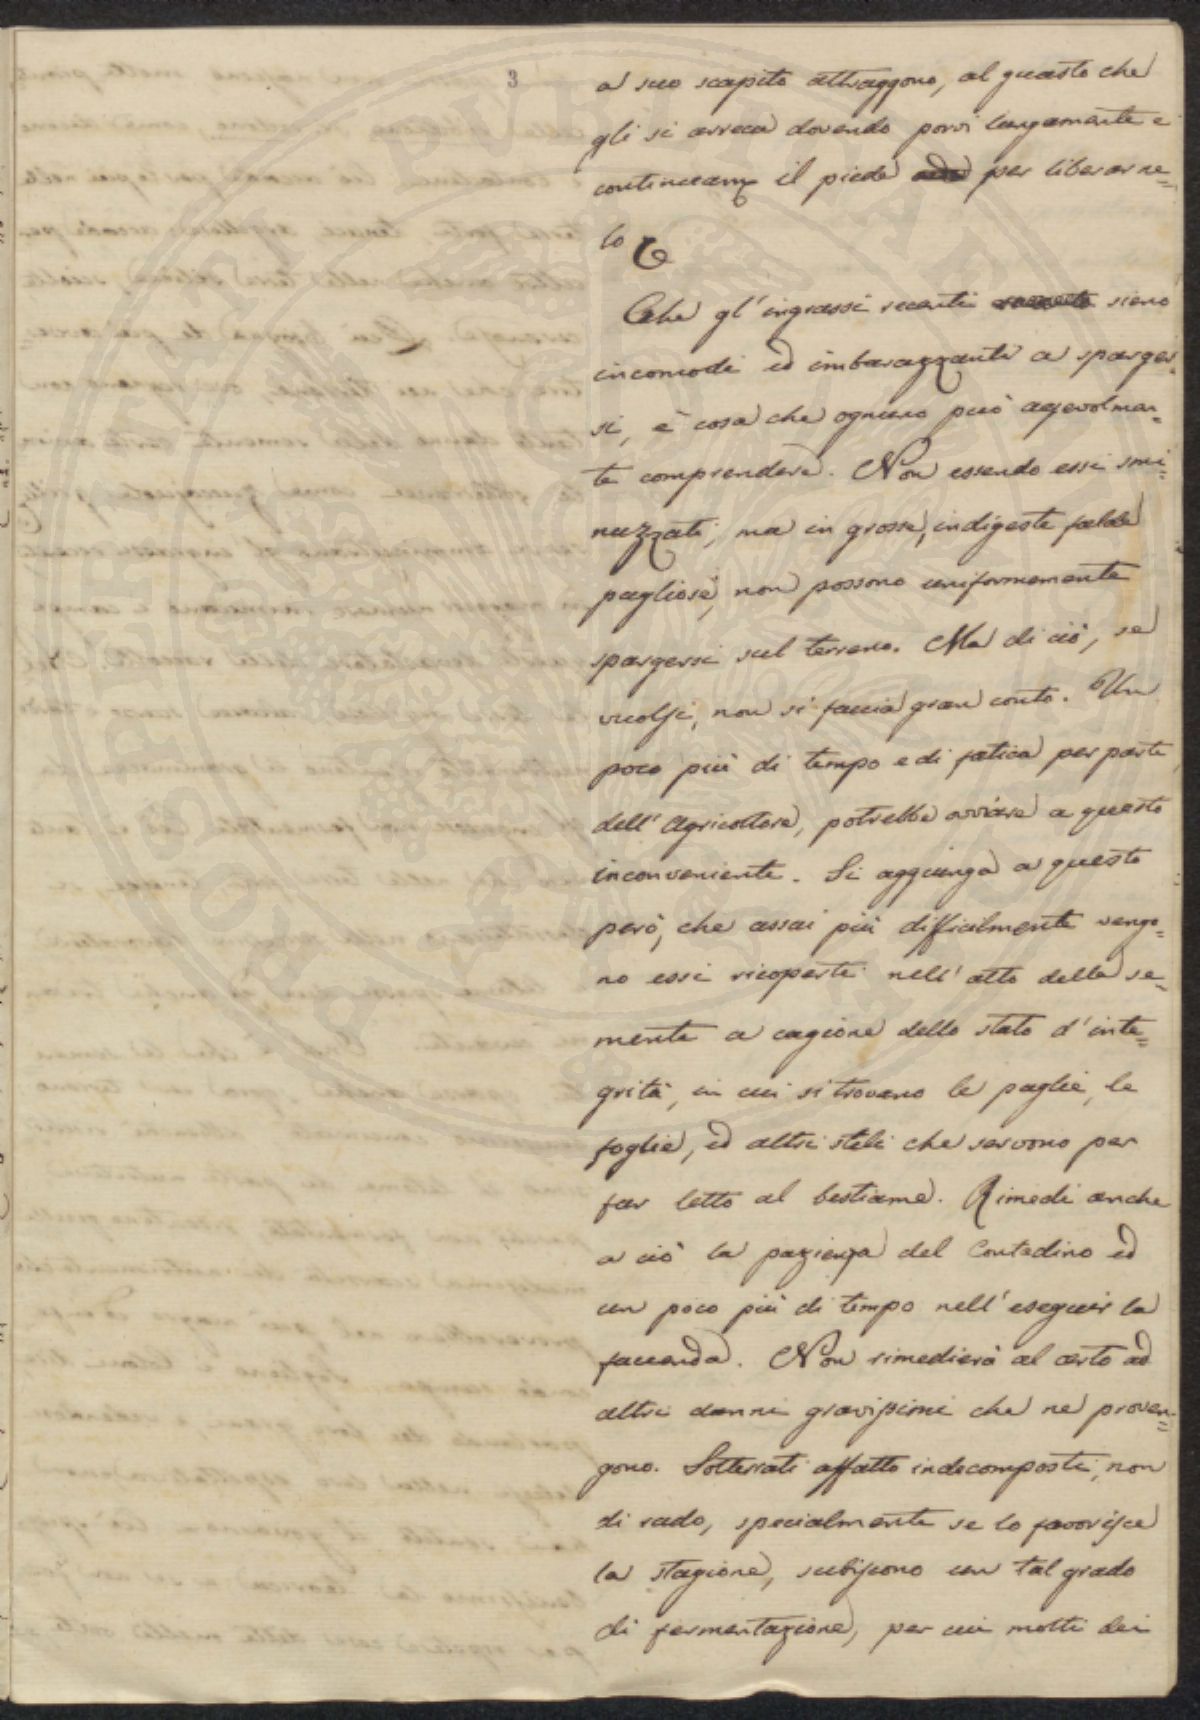 3
a suo scapito attraggono, al guasto che
gli si arreca dovendo porvi lungamente e
continuam.e il piede per liberarne=
lo
Che gl'ingrassi recenti sieno
incomodi ed imbarazzanti a sparger=
si, è cosa che ognuno può agevolmen=
te comprendere. Non essendo essi smi=
nuzzati, ma in grosse, indigeste falde
pagliose, non possono uniformemente
spargersi sul terreno. Ma di ciò, se
vuolsi, non si faccia gran conto. Un
poco più di tempo e di fatica per parte
dell'Agricoltore, potrebbe ovviare a questo
inconveniente. Si aggiunga a questo
però, che assai più difficilmente vengo=
no essi ricoperti nell'atto della se=
menta a cagione dello stato d'inte=
grità, in cui si trovano le paglie, le
foglie, ed altri steli che servono per
far letto al bestiame. Rimedi anche
a ciò la pazienza del Contadino ed
un poco più di tempo nell'eseguir la
faccenda. Non rimedierà al certo ad
altri danni gravissimi che ne proven=
gono. Sotterrati affatto indecomposti, non
di rado, specialmente se lo favorisce
la stagione, subiscono un tal grado
di fermentazione, per cui molti dei